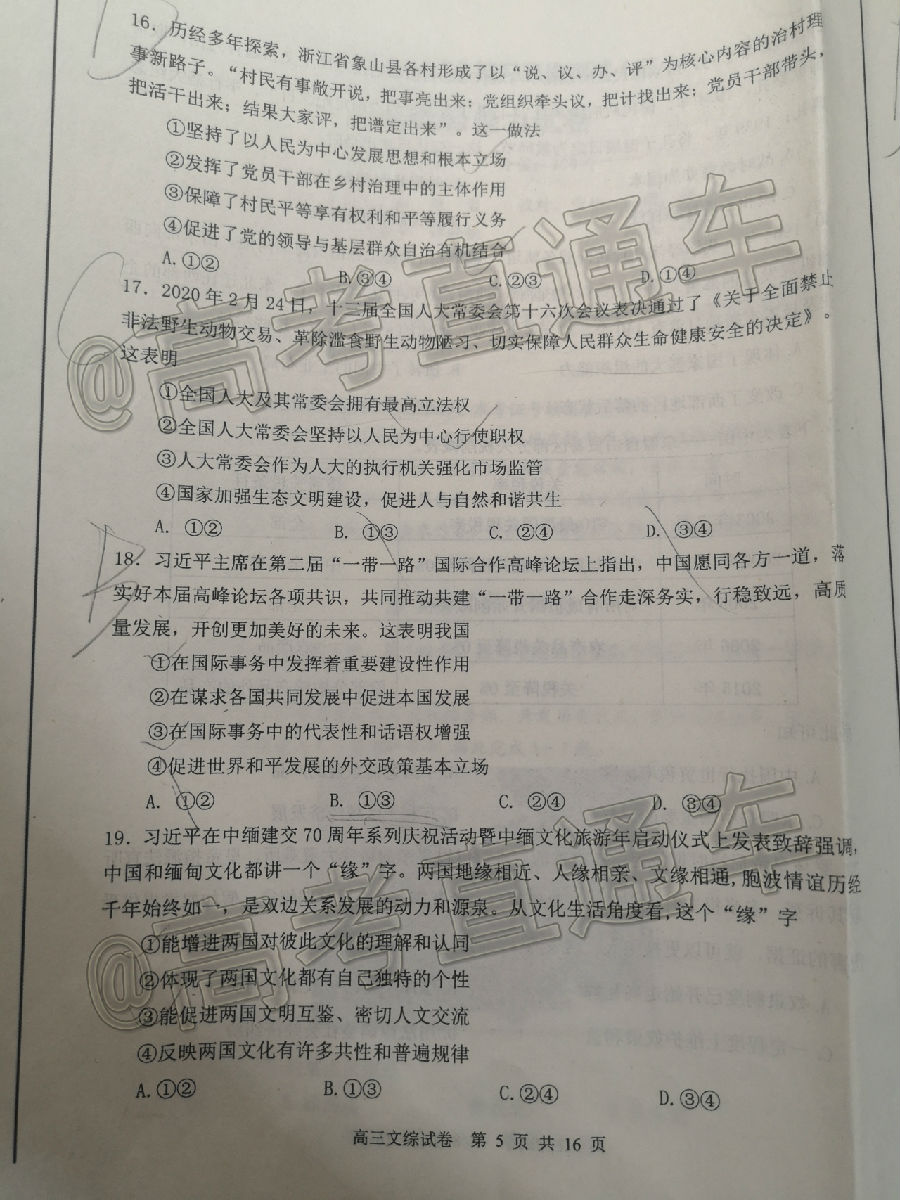 16．历经多年探索，浙江省象山县各村形成了以“说、议、办、评”为核心内容的治村理
事新路子。“村民有事敞开说，把事亮出来；党组织牵头议，把计找出来；党员干部带头，
把活干出来；结果大家评，把谱定出来”。这一做法
①坚持了以人民为中心发展思想和根本立场
②发挥了党员干部在乡村治理中的主体作用
③保障了村民平等享有权利和平等履行义务
④促进了党的领导与基层群众自治有机结合
A.①② B.③④ C.②③ D.①④
17．2020年2月24日，十三届全国人大常委会第十六次会议表决通过了《关于全面禁止
非法野生动物交易、革除滥食野生动物陋习、切实保障人民群众生命健康安全的决定》。
这表明
①全国人大及其常委会拥有最高立法权
②全国人大常委会坚持以人民为中心行使职权
③人大常委会作为人大的执行机关强化市场监管
④国家加强生态文明建设，促进人与自然和谐共生
A. ①② B. ①③ C. ②④ D. ③④
18．习近平主席在第二届“一带一路”国际合作高峰论坛上指出，中国愿同各方一道，落
实好本届高峰论坛各项共识，共同推动共建“一带一路”合作走深务实，行稳致远，高质
量发展，开创更加美好的未来。这表明我国
①在国际事务中发挥着重要建设性作用
②在谋求各国共同发展中促进本国发展
③在国际事务中的代表性和话语权增强
④促进世界和平发展的外交政策基本立场
A. ①② B. ①③ C. ②④ D. ③④
19．习近平在中缅建交70周年系列庆祝活动暨中缅文化旅游年启动仪式上发表致辞强调，
中国和缅甸文化都讲一个“缘”字。两国地缘相近、人缘相亲、文缘相通，胞波情谊历经
千年始终如一，是双边关系发展的动力和源泉。从文化生活角度看，这个“缘”字
①能增进两国对彼此文化的理解和认同
②体现了两国文化都有自己独特的个性
③能促进两国文明互鉴、密切人文交流
④反映两国文化有许多共性和普遍规律
A.①② B.①③ C.②④ D.③④
高三文综试卷 第 5 页 共 16 页
@高考直通车
@高考直通车